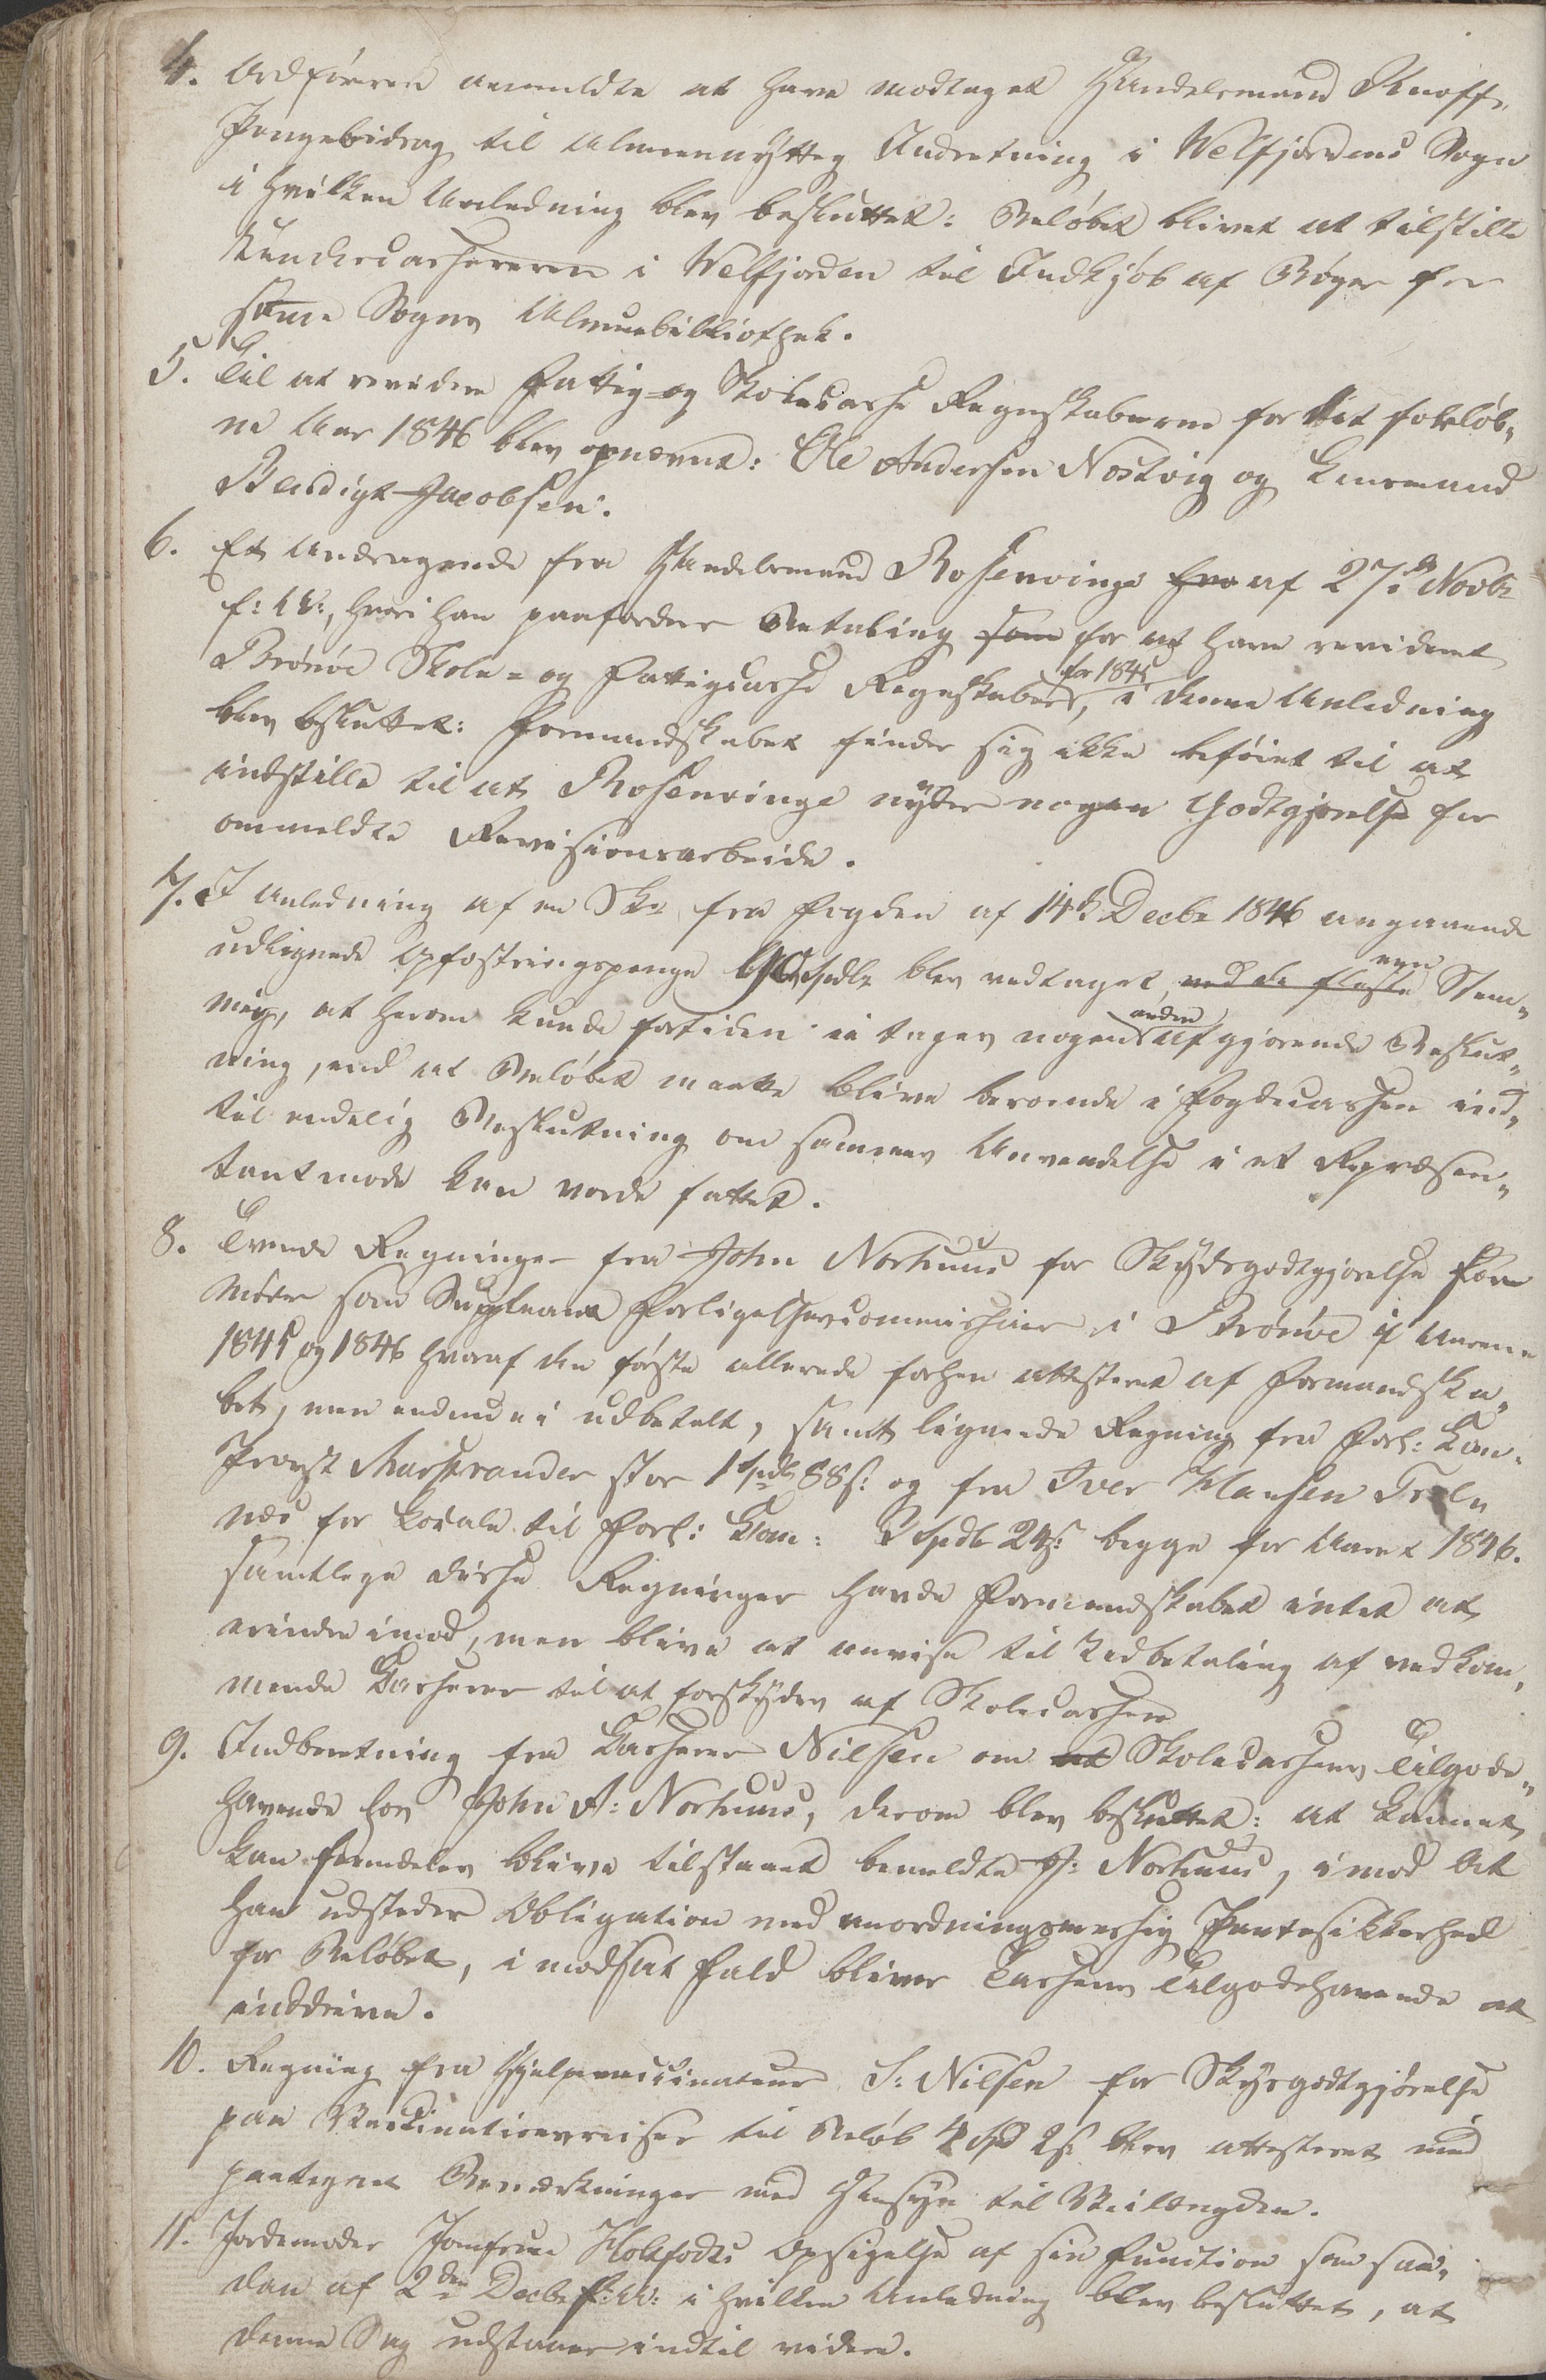 4. Ordføreren anmeldte at have modtaget Handelsmand Knoffs
Pengebidrag til almeennyttig Indretning i Welfjordens Sogn
i hvilken Anledning blev besluttet: Beløbet blivet at tilstille
Undercassereren i Welfjorden til Indkjøb af Bøger for
samme Sogns Almuebibliothek.
5. Til at revidere Fattig- og Skolecasse Regnskaberne for det forløb„
ne Aar 1846 blev opnævnt: Ole Andersen Nostvig og Lensmand
Benedigt Jacobsen.
6. Et Andragende fra Handelsmand Rosenvinge fra af 27de Novbr
f: A:, hvori han paafordrer Betaling som for at have revideret
Brønøe Skole- og Fattigcasse Regnskaber for 1845, i denne Anledning
blev besluttet: Formandskabet finder sig ikke beføiet til at
indstille til at Rosenvinge nyder nogen Godtgjørelse for
ommeldte Revisionsarbeide.
7. I Anledning af en Skr fra Fogden af 14d Decbr 1846 angaaende
udlignede Opfostringspenge 90 Spdlr blev vedtaget, ved de fleste Stem„
mig, at herom kunde fortiden ei tages nogen anden afgjørende Beslut„
ning, end at Beløbet maatte blive beroende i Fogdcassen ind„
til endelig Beslutning om sammes Anvendelse i et Repræsen„
tantmøde kan vorde fattet.
8. Tvende Regninger fra John Norhuus for Skydsgodtgjørelse som
Møder som Suppleant Forligelsescommissair i Brønøe i Aarene
1845 og 1846 hvoraf den første allerede forhen attesteret af Formandska„
bet, men endnu ei udbetalt, samt lignende Regning fra Forl: Com:
Provst Markrander stor 1 Spdlr 88 s: og fra Iver Hansen Træln„
næs for Locale til Forl: Com: 2 Spdlr 24 s: begge for Aaret 1846.
Samtlige disse Regninger havde Formandskabet intet at
erindre imod, men blive at anvise til Udbetaling af vedkom„
mende Casserer til at forskydes af Skolecassen
9. Indberetning fra Casserer Nilsen om at Skolecassens Tilgode„
havende hos John A: Norhuus, derom blev besluttet: at Laanet
kan fremdeles blive tilstaaet bemeldte J: Norhuus, imod at
han udsteder Obligation med anordningsmessig Pantesikkerhed
for Beløbet, i modsat Fald bliver Cassens Tilgodehavende at
inddrive.
10. Regning fra Hjelpevaccinateur S: Nilsen for Skysgodtgjørelse
paa Vaccinationsreiser til Beløb 4 Spd 2 s: blev attesteret med
paategnet Bemærkninger med Hensyn til Veilængden.
11. Jordemoder Jomfrue Holtfodts Opsigelse af sin Function som saa„
dan af 2den Decbr f: A: i hvilken Anledning blev besluttet, at
denne Sag udstaaer indtil videre.